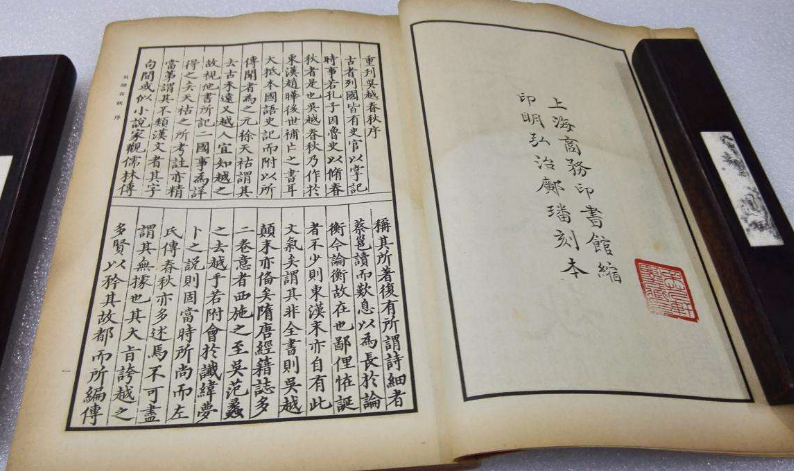 上海商務印書館縮
印明弘治鄺璠刻本
重刋吳越春秋序
古者列國皆有史官以掌記
時事若孔子因魯史以脩春
秋者是也吳越春秋乃作於
東漢趙曄後世補亡之書耳
大抵本國語史記而附以所
傳聞者為之元徐天祜謂其
去古未遠又越人宜知越之
故視他書所記二國事為詳
得之矣天祜之所考註亦精
當第謂其不類漢文者其字
句間或似小說家觀儒林傳
稱其所著復有所謂詩細者
蔡邕讀而歎息以為長於論
衡今論衡故在也鄙俚怪誕
者不少則東漢末亦自有此
文氣矣謂其非全書則吳越
顛末亦備矣隋唐經籍誌多
二卷意者西施之至吳范蠡
之去越乎若附會於讖緯夢
卜之說則固當時所尚而左
氏傳春秋亦多述焉不可盡
謂其無據也其大旨誇越之
多賢以矜其故都而所編傳
吳越春秋 序